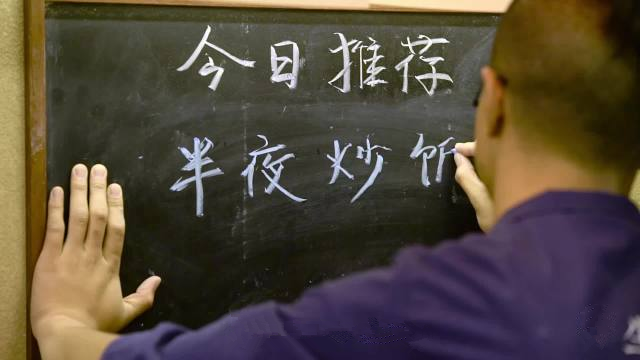 今日推荐
半夜炒饭